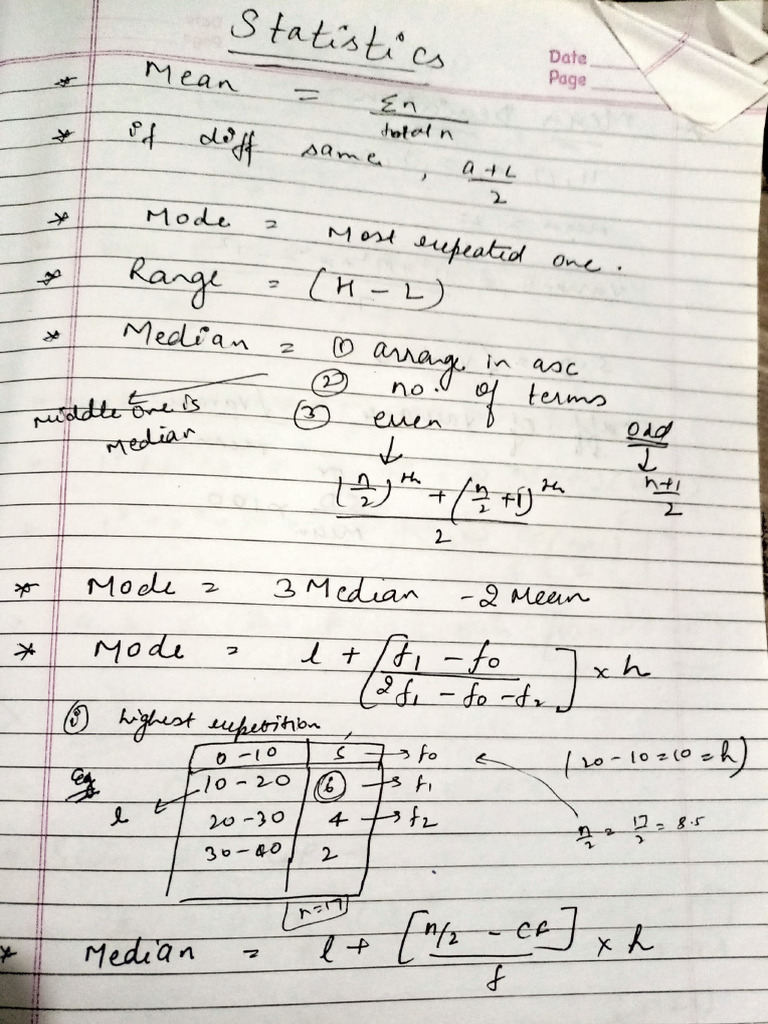 Statistics
Date
Page
* Mean = Σn / total n
* if diff same, a+L / 2
* Mode = Most repeated one.
* Range = (H - L)
* Median = ① arrange in asc
② no. of terms
middle one is Median
③ even odd
↓ ↓
(n/2)th + (n/2 + 1)th / 2 n+1 / 2
* Mode = 3 Median - 2 Mean
* Mode = l + [f1 - f0 / 2f1 - f0 - f2] × h
① highest repetition
Eg
0-10 5 → f0 (20-10=10=h)
l ← 10-20 6 → f1
20-30 4 → f2 n/2 = 17/2 = 8.5
30-40 2
n=17
* Median = l + [n/2 - CF / f] × h